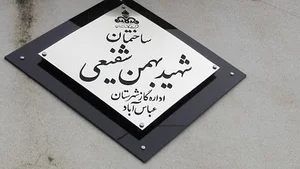 ساختمان
شهید بهمن شفیعی
اداره گاز شهرستان
عباس آباد